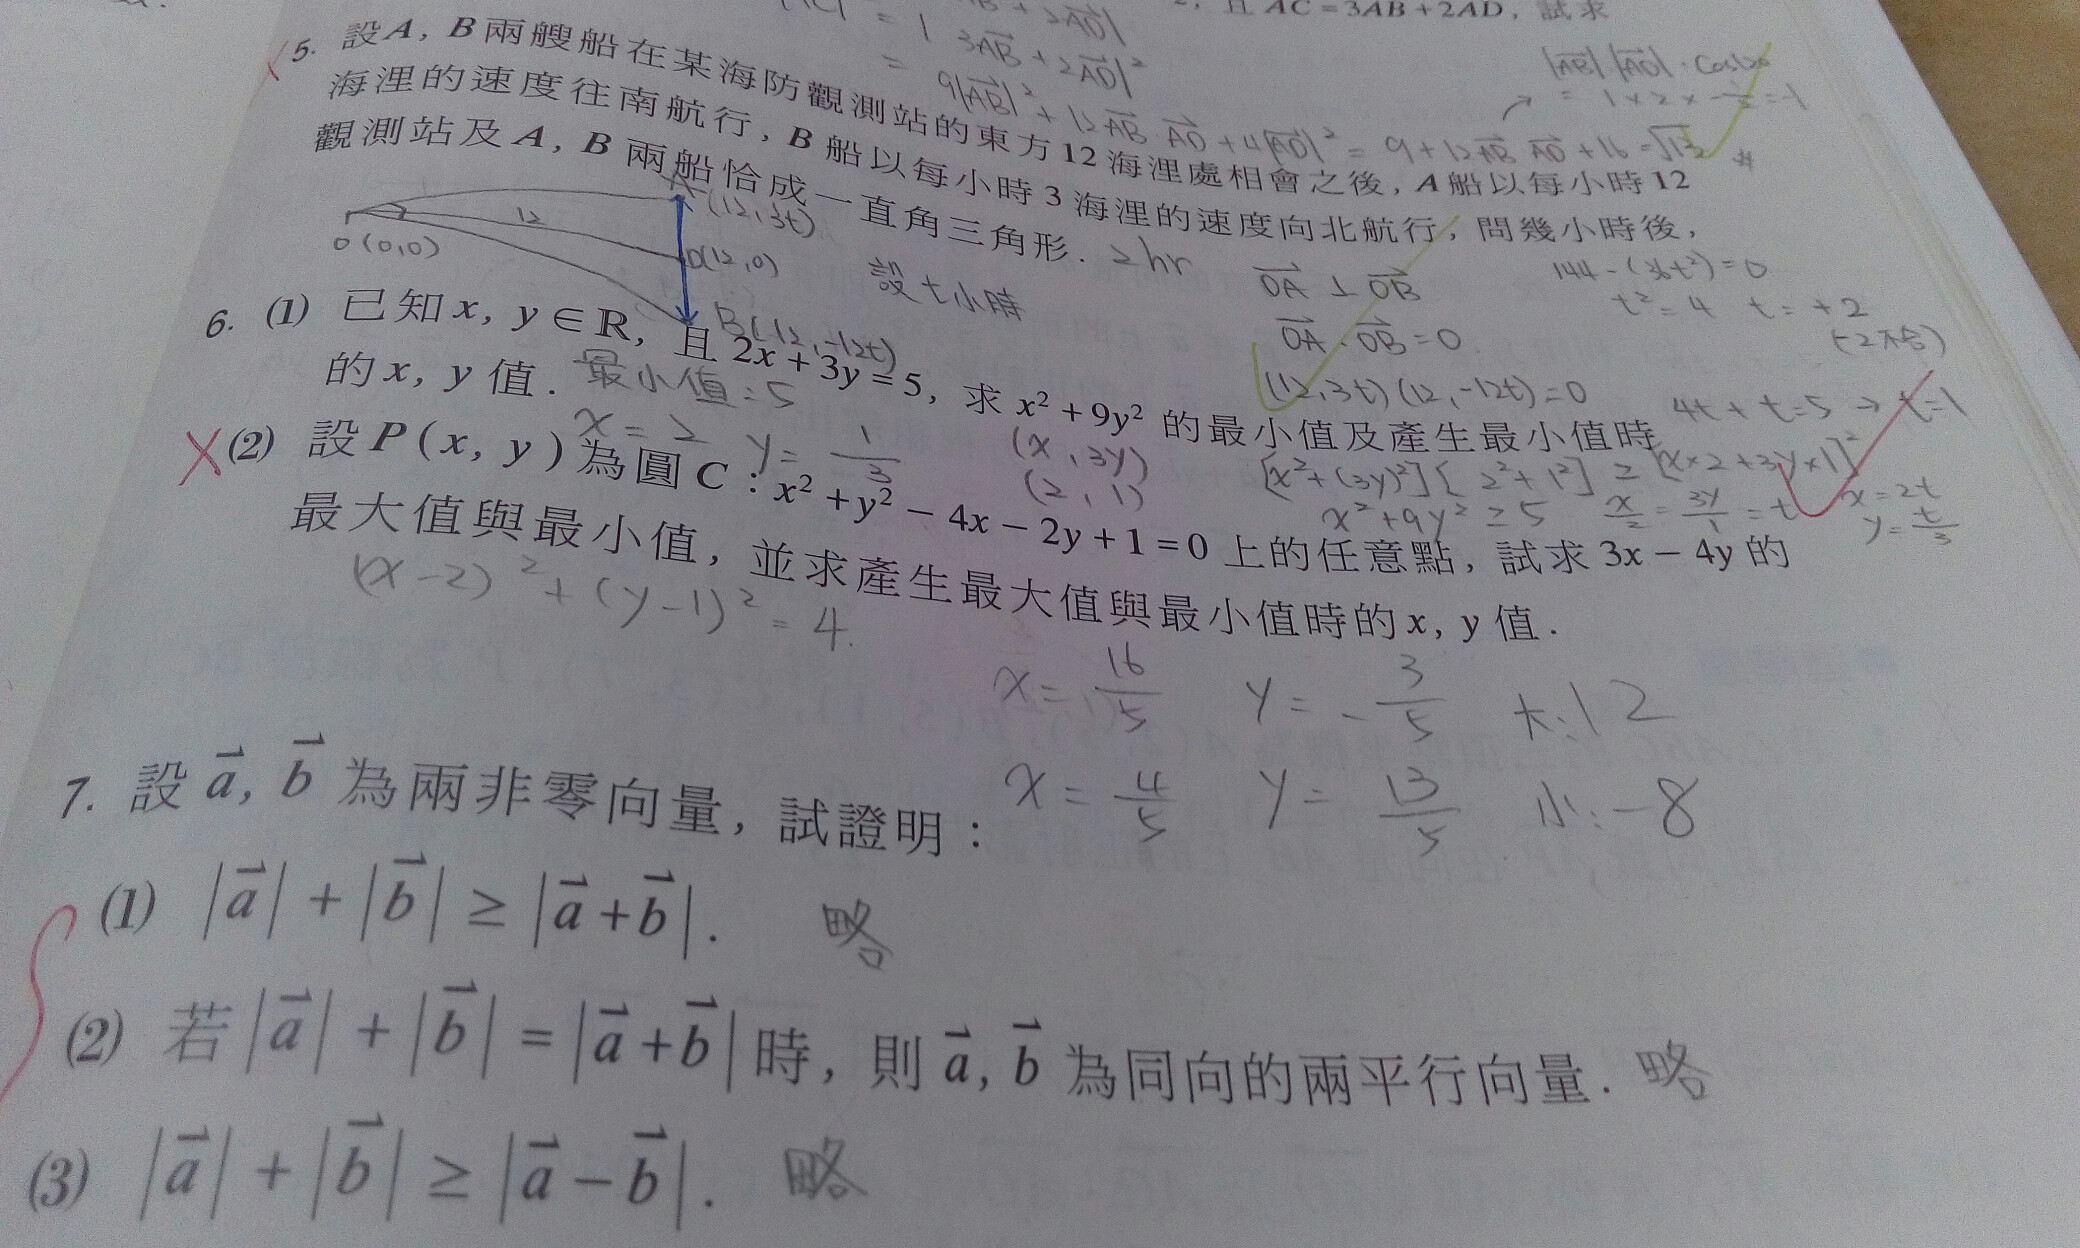 且 AC = 3AB + 2AD, 試求
3AB + 2AD|²
|AB| |AD| · cos120
= 9|AB|² + 12AB · AD + 4|AD|² = 9 + 12AB AD + 16 = √13
5. 設A, B兩艘船在某海防觀測站的東方12海浬處相會之後, A船以每小時12
海浬的速度往南航行, B船以每小時3海浬的速度向北航行, 問幾小時後,
觀測站及A, B兩船恰成一直角三角形. 2hr
A(12, 3t)
12
O(0,0)
D(12,0)
B(12, -12t)
設t小時
OA ⊥ OB
OA · OB = 0
(12, 3t)(12, -12t) = 0
144 - (36t²) = 0
t² = 4 t = +2
(-2不合)
6. (1) 已知x, y ∈ R, 且2x + 3y = 5, 求x² + 9y²的最小值及產生最小值時
的x, y值. 最小值:5
x = 2 y = 1/3
(x, 3y)
(2, 1)
[x² + (3y)²][2² + 1²] ≥ [x×2 + 3y×1]²
x² + 9y² ≥ 5 x/2 = 3y/1 = t
4t + t = 5 → t = 1
x = 2t
y = t/3
(2) 設P(x, y)為圓C : x² + y² − 4x − 2y + 1 = 0上的任意點, 試求3x − 4y的
最大值與最小值, 並求產生最大值與最小值時的x, y值.
(x-2)² + (y-1)² = 4.
x = 16/5 y = -3/5 大:12
x = 4/5 y = 13/5 小:-8
7. 設a, b為兩非零向量, 試證明:
(1) |a| + |b| ≥ |a + b|. 略
(2) 若|a| + |b| = |a + b|時, 則a, b為同向的兩平行向量. 略
(3) |a| + |b| ≥ |a − b|. 略